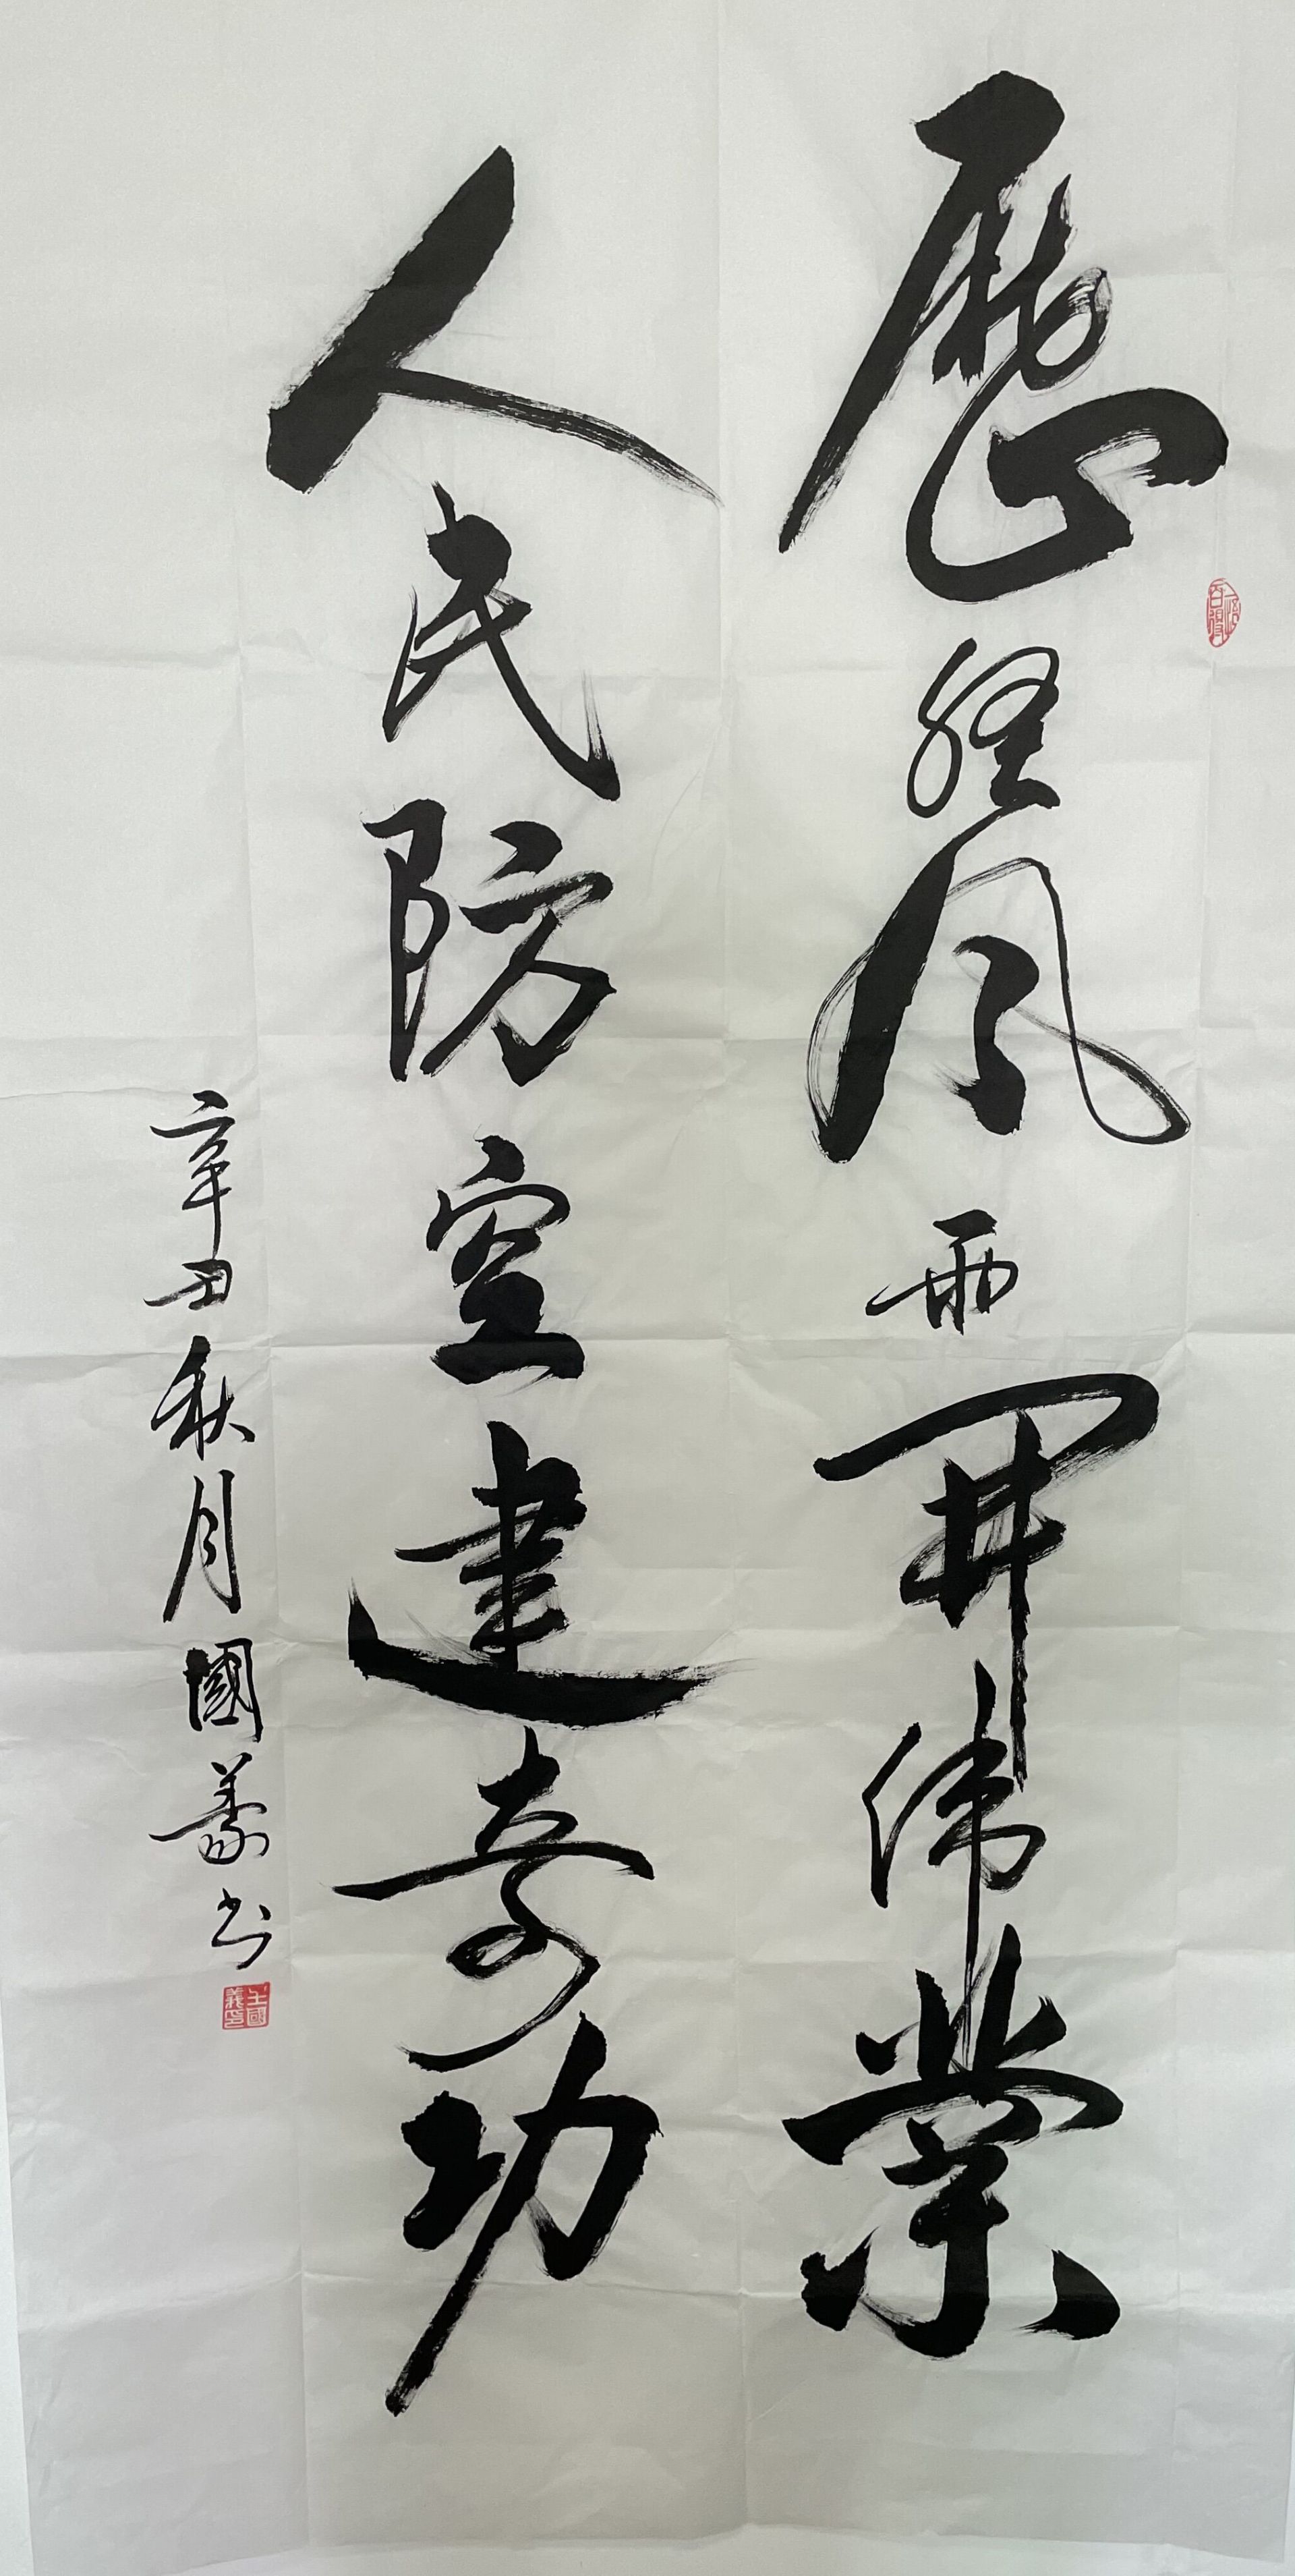 歷經風雨開偉業
人民防空建奇功
辛丑秋月國義书
王國義印